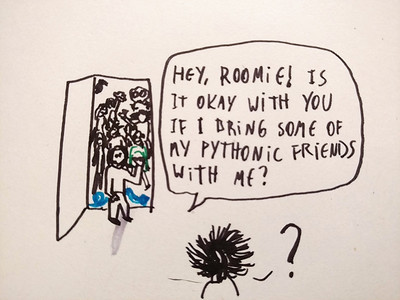 HEY, ROOMIE! IS
IT OKAY WITH YOU
IF I BRING SOME OF
MY PYTHONIC FRIENDS
WITH ME?
?